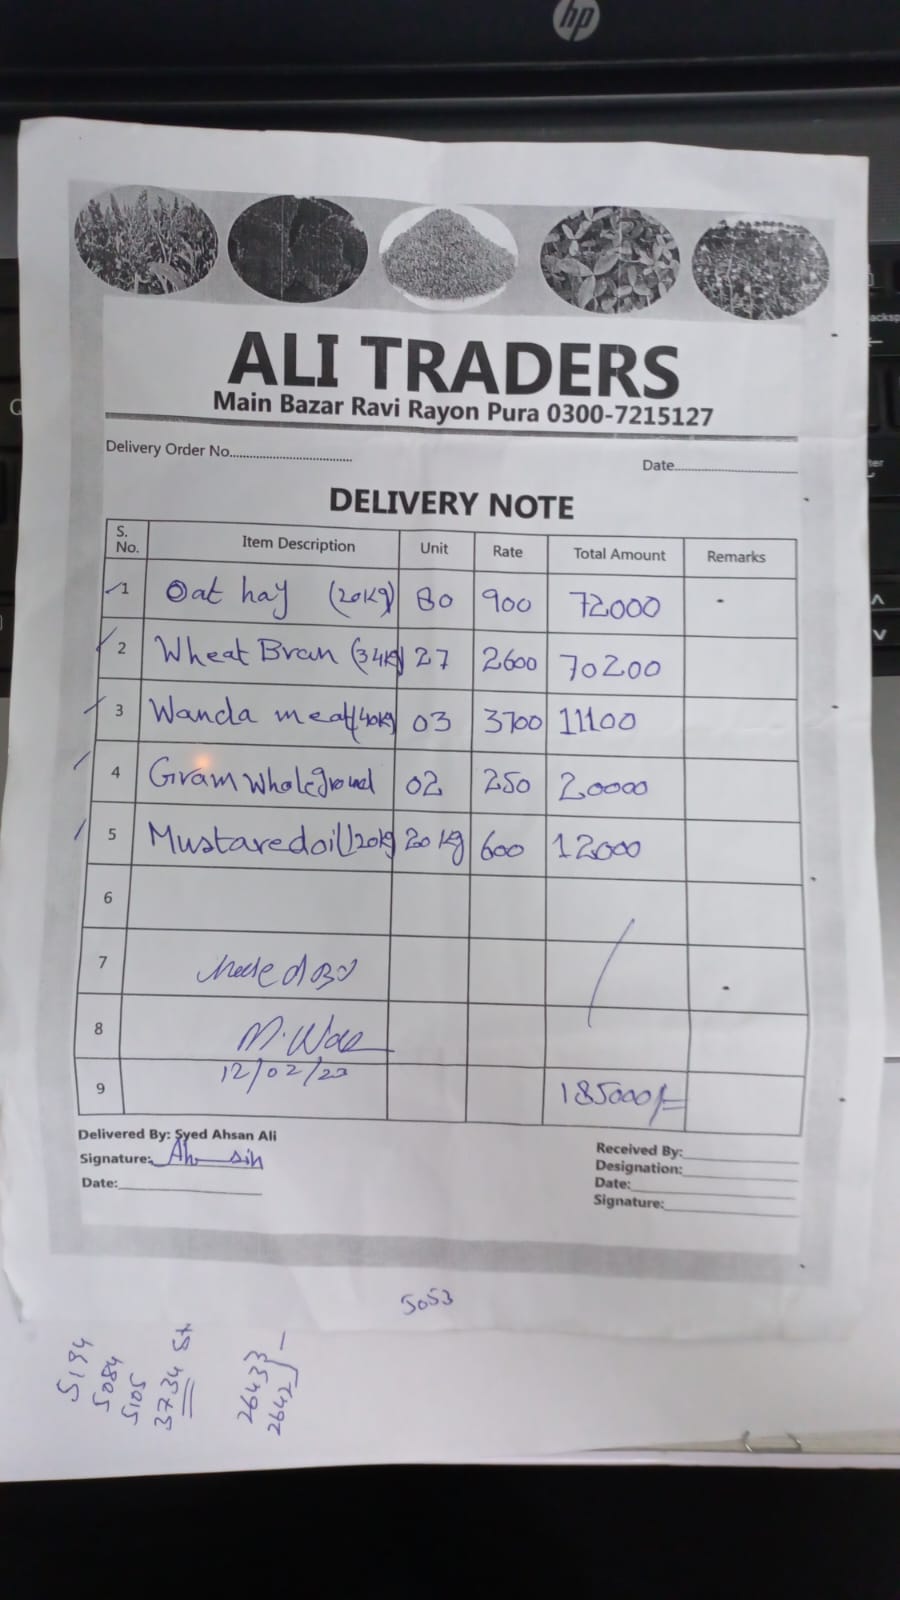 hp
ALI TRADERS
Main Bazar Ravi Rayon Pura 0300-7215127
Delivery Order No.
Date
DELIVERY NOTE
S. No. Item Description Unit Rate Total Amount Remarks
1 Oat hay (20Kg) 80 900 72000
2 Wheat Bran (34Kg) 27 2600 70200
3 Wanda meat (40kg) 03 3700 11100
4 Gram whole ground 02 250 20000
5 Mustaredoil (20kg) 20 Kg 600 12000
6
7
8 M.
12/02/23
9 185000/=
Delivered By: Syed Ahsan Ali
Signature: Ahsin
Date:
Received By:
Designation:
Date:
Signature:
5053
5194
5084
5105
3734 St
26433
2642